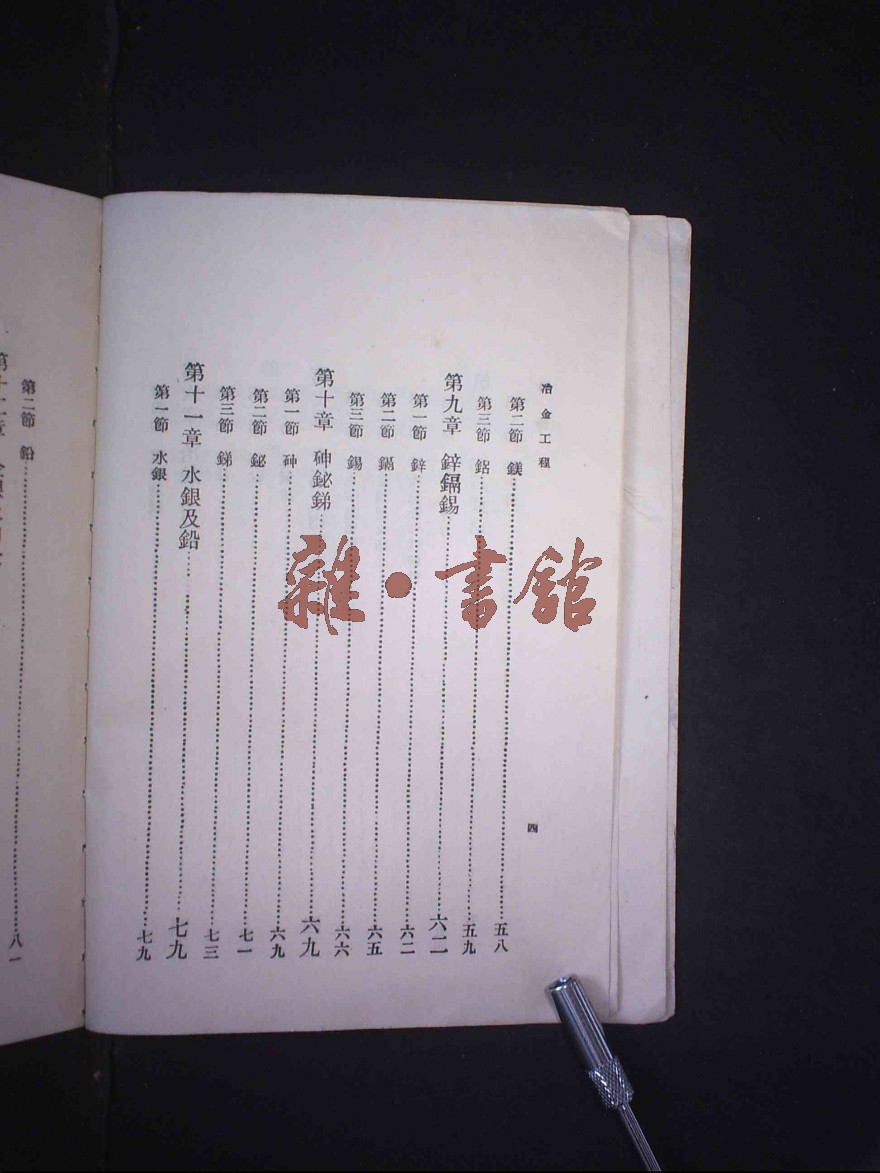 冶金工程
四
第二節 鎂 五八
第三節 鋁 五九
第九章 鋅鎘錫 六二
第一節 鋅 六二
第二節 鎘 六五
第三節 錫 六六
第十章 砷鉍銻 六九
第一節 砷 六九
第二節 鉍 七一
第三節 銻 七三
第十一章 水銀及鉛 七九
第一節 水銀 七九
第二節 鉛 八一
雜·書館